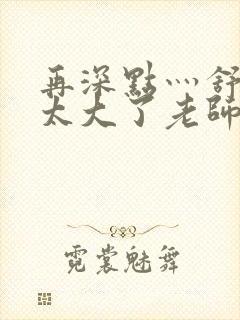 再深點灬舒
太大了老師
霓裳魅舞